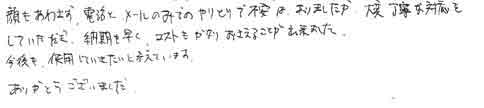 顔もあわさず、電話とメールのみでのやりとりで不安は、ありましたが、大変丁寧な対応を
していただき、納期も早く、コストもかなりおさえることが出来ました。
今後も、使用していきたいと考えています。
ありがとうございました。